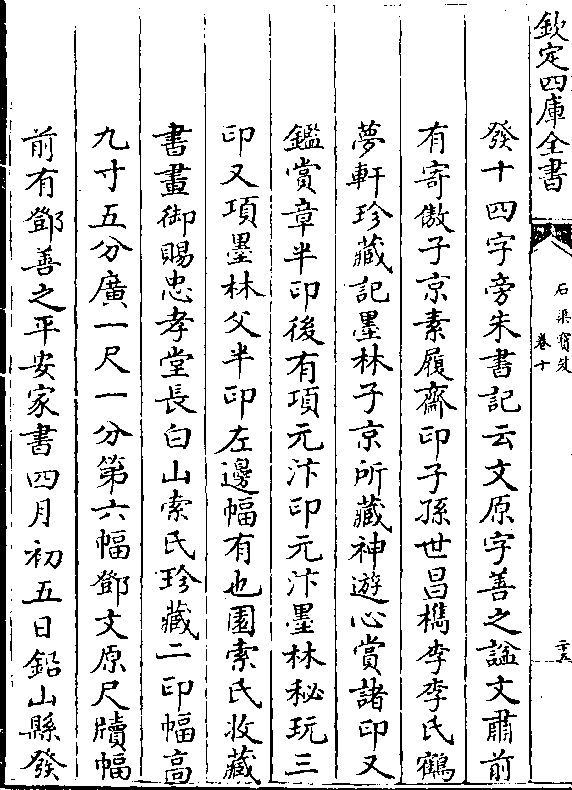 欽定四庫全書
石渠寳笈
卷十
二十五
發十四字旁朱書記云文原字善之諡文肅前
有寄傲子京素履齋印子孫世昌檇李李氏鶴
夢軒珍藏記墨林子京所藏神遊心賞諸印又
鑑賞章半印後有項元汴印元汴墨林秘玩三
印又項墨林父半印左邊幅有也園索氏收藏
書畫御賜忠孝堂長白山索氏珍藏二印幅高
九寸五分廣一尺一分第六幅鄧文原尺牘幅
前有鄧善之平安家書四月初五日鉛山縣發